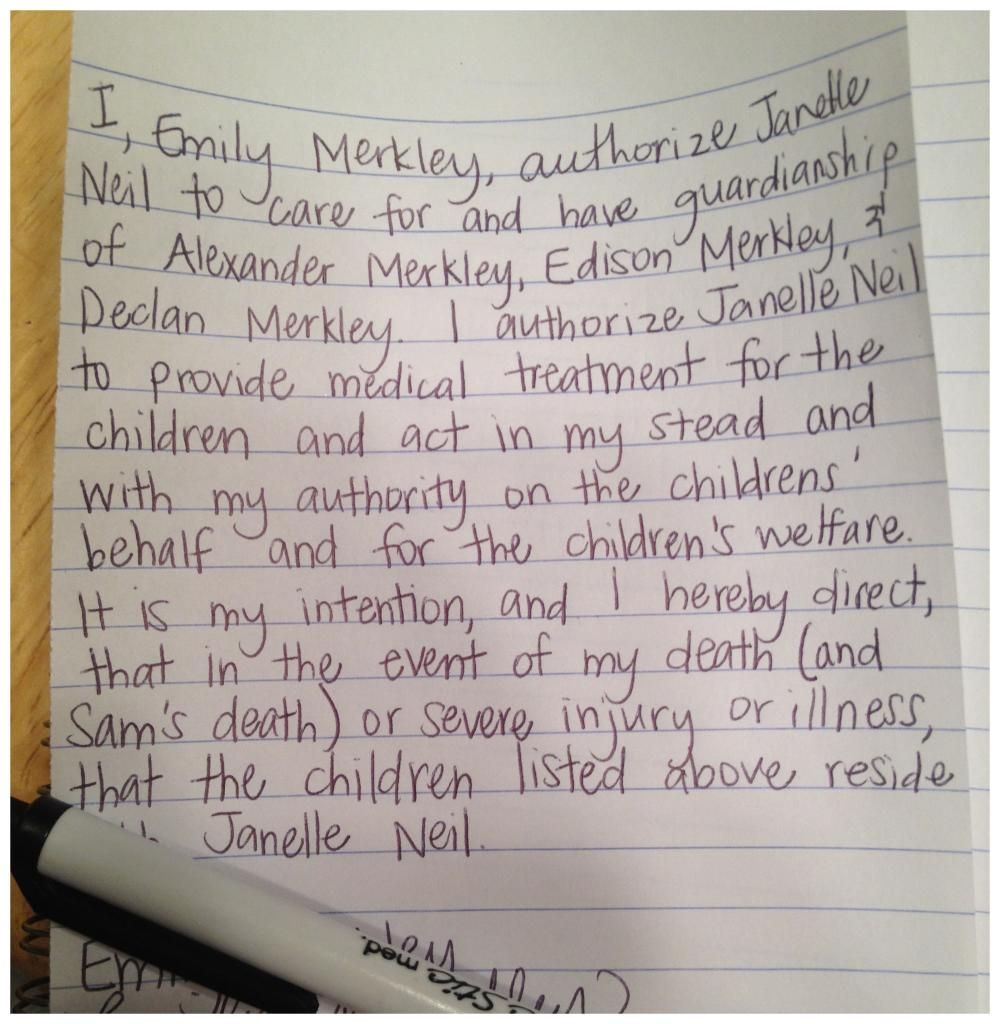 I, Emily Merkley, authorize Janelle
Neil to care for and have guardianship
of Alexander Merkley, Edison Merkley, &
Declan Merkley. I authorize Janelle Neil
to provide medical treatment for the
children and act in my stead and
with my authority on the childrens'
behalf and for the children's welfare.
It is my intention, and I hereby direct,
that in the event of my death (and
Sam's death) or severe injury or illness,
that the children listed above reside
Janelle Neil.
Stic med.